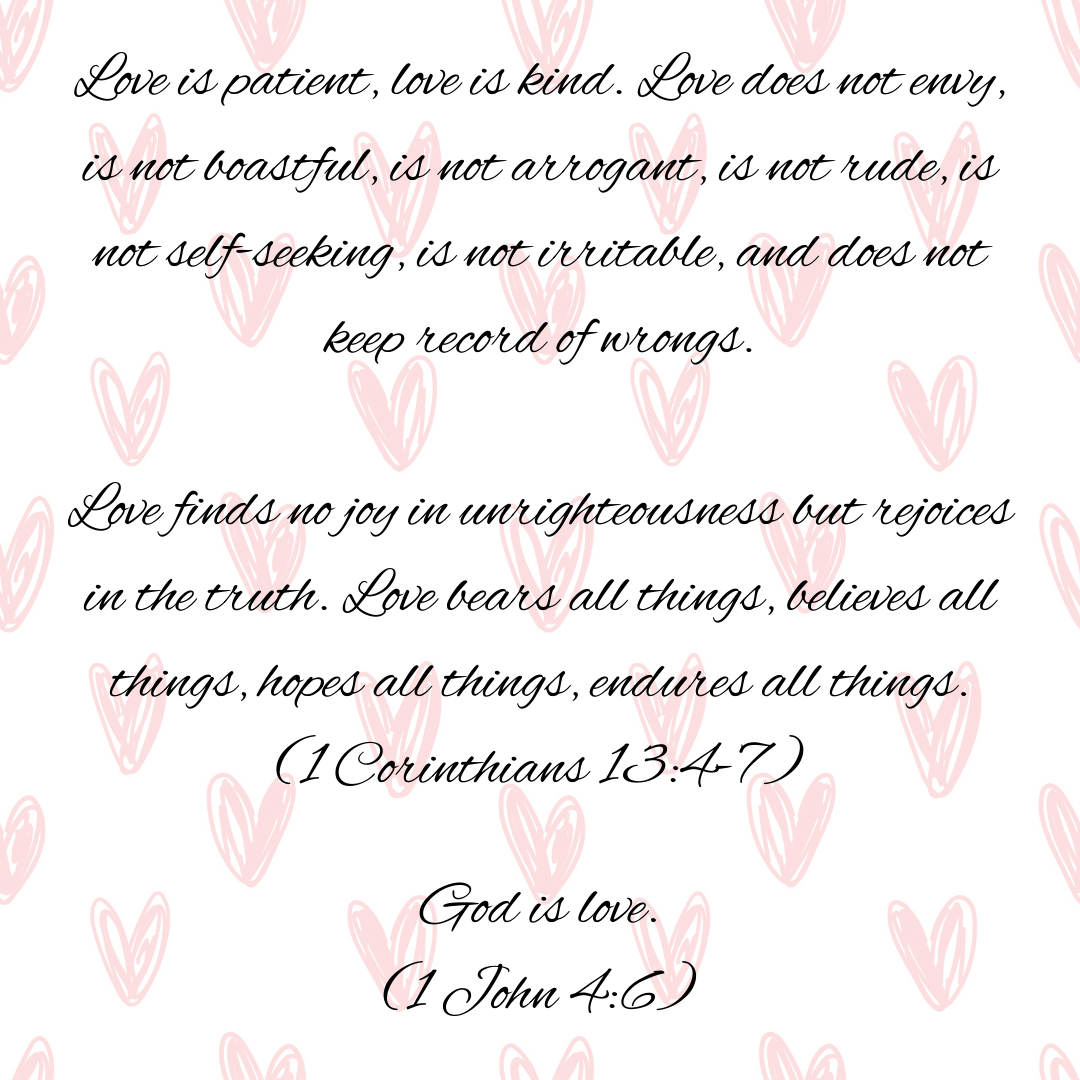 Love is patient, love is kind. Love does not envy,
is not boastful, is not arrogant, is not rude, is
not self-seeking, is not irritable, and does not
keep record of wrongs.
Love finds no joy in unrighteousness but rejoices
in the truth. Love bears all things, believes all
things, hopes all things, endures all things.
(1 Corinthians 13:4-7)
God is love.
(1 John 4:6)